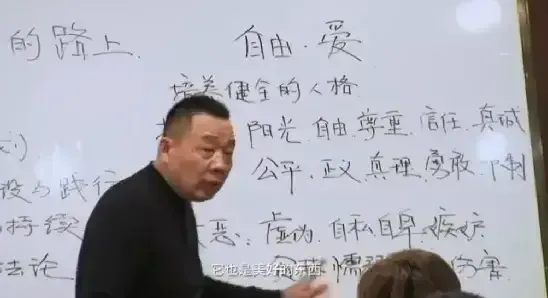 的路上 自由·爱
培养健全的人格
阳光 自由 尊重 信任 真诚
公平 正义 真理 勇敢
设与践行
持续 恶: 虚伪 自私 自卑 嫉妒
法论 伤害
它也是美好的东西